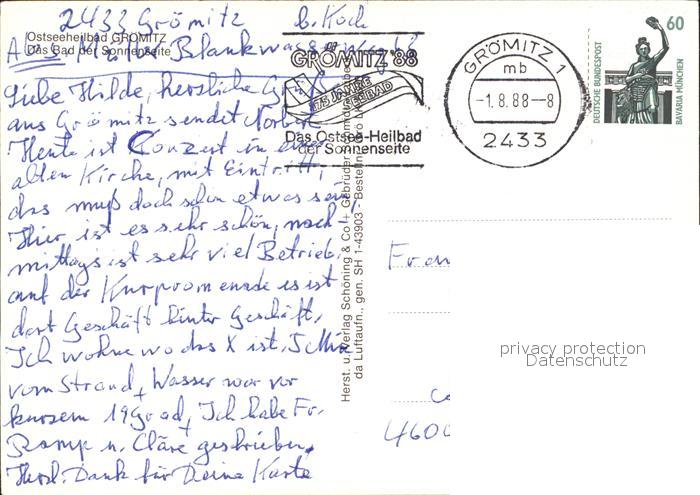 2433 Grömitz b. Koch
Ostseeheilbad GRÖMITZ
Das Bad der Sonnenseite
Abs.
Liebe Hilde, herzliche Grüße
aus Grömitz sendet Norbert
Heute ist Conzert in einer
alten Kirche, mit Eintritt,
das muß doch schon etwas sein.
Hier ist es sehr schön, nach-
mittags ist sehr viel Betrieb,
auf der Kurpromenade es ist
dort Geschäft hinter Geschäft,
Ich wohne wo das X ist, 5 Min
vom Strand, Wasser war vor
kurzem 19 Grad, Ich habe Fr.
Ramp u. Cläre geschrieben,
Herzl. Dank für Deine Karte
GRÖMITZ '88
75 JAHRE
SEEBAD
Das Ostsee-Heilbad
der Sonnenseite
GRÖMITZ 1
mb
-1.8.88--8
2433
60
DEUTSCHE BUNDESPOST
BAVARIA MÜNCHEN
Herst. u. Verlag Schöning & Co + Gebrüder
da Luftaufn., gen. SH 1-43903 · Bestellnr.
Fr
4600
privacy protection
Datenschutz